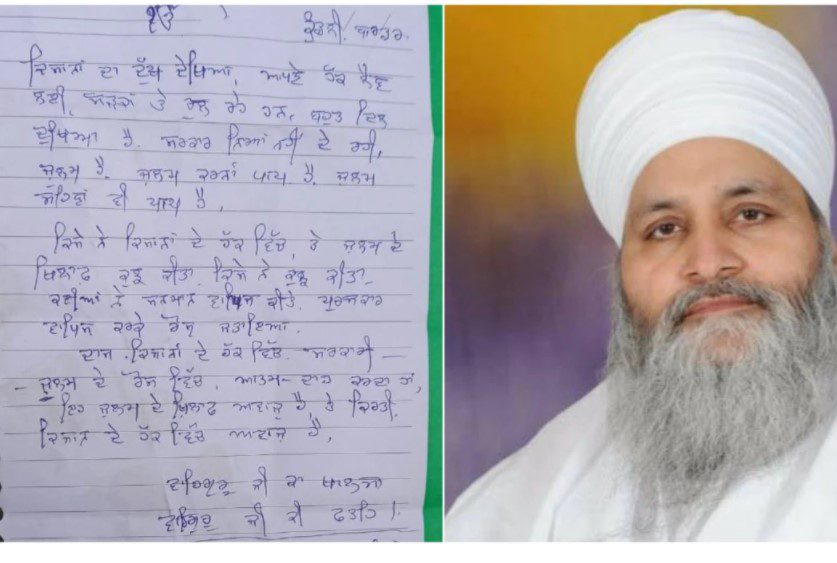 ੴ
ਕੁੰਡਲੀ ਬਾਰਡਰ
ਕਿਸਾਨਾਂ ਦਾ ਦੁੱਖ ਦੇਖਿਆ, ਆਪਣੇ ਹੱਕ ਲੈਣ
ਲਈ, ਸੜਕਾਂ ਤੇ ਰੁਲ ਰਹੇ ਹਨ, ਬਹੁਤ ਦਿਲ
ਦੁੱਖਿਆ ਹੈ. ਸਰਕਾਰ ਨਿਆਂ ਨਹੀਂ ਦੇ ਰਹੀ,
ਜ਼ੁਲਮ ਹੈ. ਜ਼ੁਲਮ ਕਰਨਾਂ ਪਾਪ ਹੈ. ਜ਼ੁਲਮ
ਸਹਿਣਾਂ ਵੀ ਪਾਪ ਹੈ,
ਕਿਸੇ ਨੇ ਕਿਸਾਨਾਂ ਦੇ ਹੱਕ ਵਿੱਚ, ਤੇ ਜ਼ੁਲਮ ਦੇ
ਖਿਲਾਫ ਕੁਝ ਕੀਤਾ, ਕਿਸੇ ਨੇ ਕੁਝ ਕੀਤਾ
ਕਈਆਂ ਨੇ ਸਨਮਾਨ ਵਾਪਿਸ ਕੀਤੇ, ਪੁਰਸਕਾਰ
ਵਾਪਿਸ ਕਰਕੇ ਰੋਸ ਜਤਾਇਆ.
ਦਾਸ ਕਿਸਾਨਾਂ ਦੇ ਹੱਕ ਵਿੱਚ. ਸਰਕਾਰੀ —
- ਜ਼ੁਲਮ ਦੇ ਰੋਸ ਵਿੱਚ, ਆਤਮ-ਦਾਹ ਕਰਦਾ ਹਾਂ,
ਇਹ ਜ਼ੁਲਮ ਦੇ ਖ਼ਿਲਾਫ ਆਵਾਜ਼ ਹੈ, ਤੇ ਕਿਰਤੀ
ਕਿਸਾਨ ਦੇ ਹੱਕ ਵਿੱਚ ਆਵਾਜ਼ ਹੈ,
ਵਾਹਿਗੁਰੂ ਜੀ ਕਾ ਖਾਲਸਾ
ਵਾਹਿਗੁਰੂ ਜੀ ਕੀ ਫਤਹਿ।